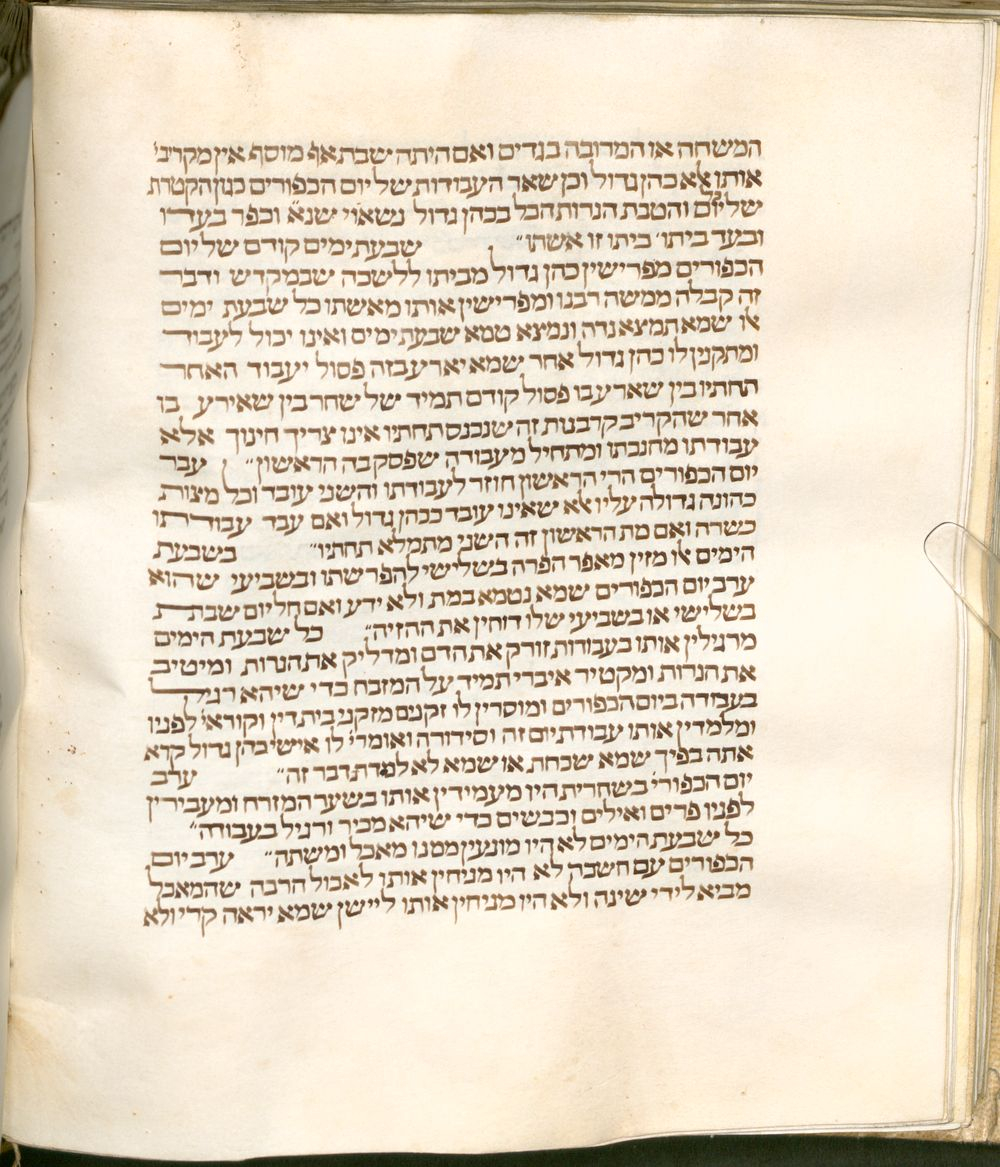 המשחה או המרובה בגדים ואם היתה שבת אף מוסף אין מקריבי'
אותו אלא כהן גדול וכן שאר העבודות של יום הכפורים כגון הקטרת
של כל יום והטבת הנרות הכל בכהן גדול נשאוי שנא' וכפר בעדו
ובעד ביתו' ביתו זו אשתו״ שבעת ימים קודם של יום
הכפורים מפרישין כהן גדול מביתו ללשכה שבמקדש ודבר
זה קבלה ממשה רבנו ומפרישין אותו מאשתו כל שבעת ימים
או שמא תמצא נדה ונמצא טמא שבעת ימים ואינו יכול לעבוד
ומתקנין לו כהן גדול אחר שמא יארע בזה פסול יעבוד האחר
תחתיו בין שארע בו פסול קודם תמיד של שחר בין שאירע בו
אחר שהקריב קרבנות זה שנכנס תחתיו אינו צריך חינוך אלא
עבודתו מחנכתו ומתחיל מעבודה שפסק בה הראשון״ עבר
יום הכפורים הרי הראשון חוזר לעבודתו והשני עובד וכל מצות
כהונה גדולה עליו אלא שאינו עובד ככהן גדול ואם עבד עבודתו
כשרה ואם מת הראשון זה השני מתמלא תחתיו״ בשבעת
הימים או מזין מאפר הפרה בשלישי להפרשתו ובשביעי שהוא
ערב יום הכפורים שמא נטמא במת ולא ידע ואם חל יום שבת
בשלישי או בשביעי שלו דוחין את ההזיה״ כל שבעת הימים
מרגילין אותו בעבודות זורק את הדם ומדליק את הנרות ומיטיב
את הנרות ומקטיר איברי תמיד על המזבח כדי שיהא רגיל
בעבודה ביום הכפורים ומוסרין לו זקנים מזקני בית דין וקורא' לפניו
ומלמדין אותו עבודת יום זה וסידורה ואומרי' לו אישי כהן גדול קרא
אתה בפיך שמא שכחת או שמא לא למדת דבר זה״ ערב
יום הכפורי' בשחרית היו מעמידין אותו בשער המזרח ומעבירין
לפניו פרים ואילים וכבשים כדי שיהא מכיר ורגיל בעבודה״
כל שבעת הימים לא היו מונעין מטנו מאכל ומשתה״ ערב יום
הכפורים עם חשכה לא היו מניחין אותו לאכול הרבה שהמאכל
מביא לידי שינה ולא היו מניחין אותו ליישן שמא יראה קרי ולא